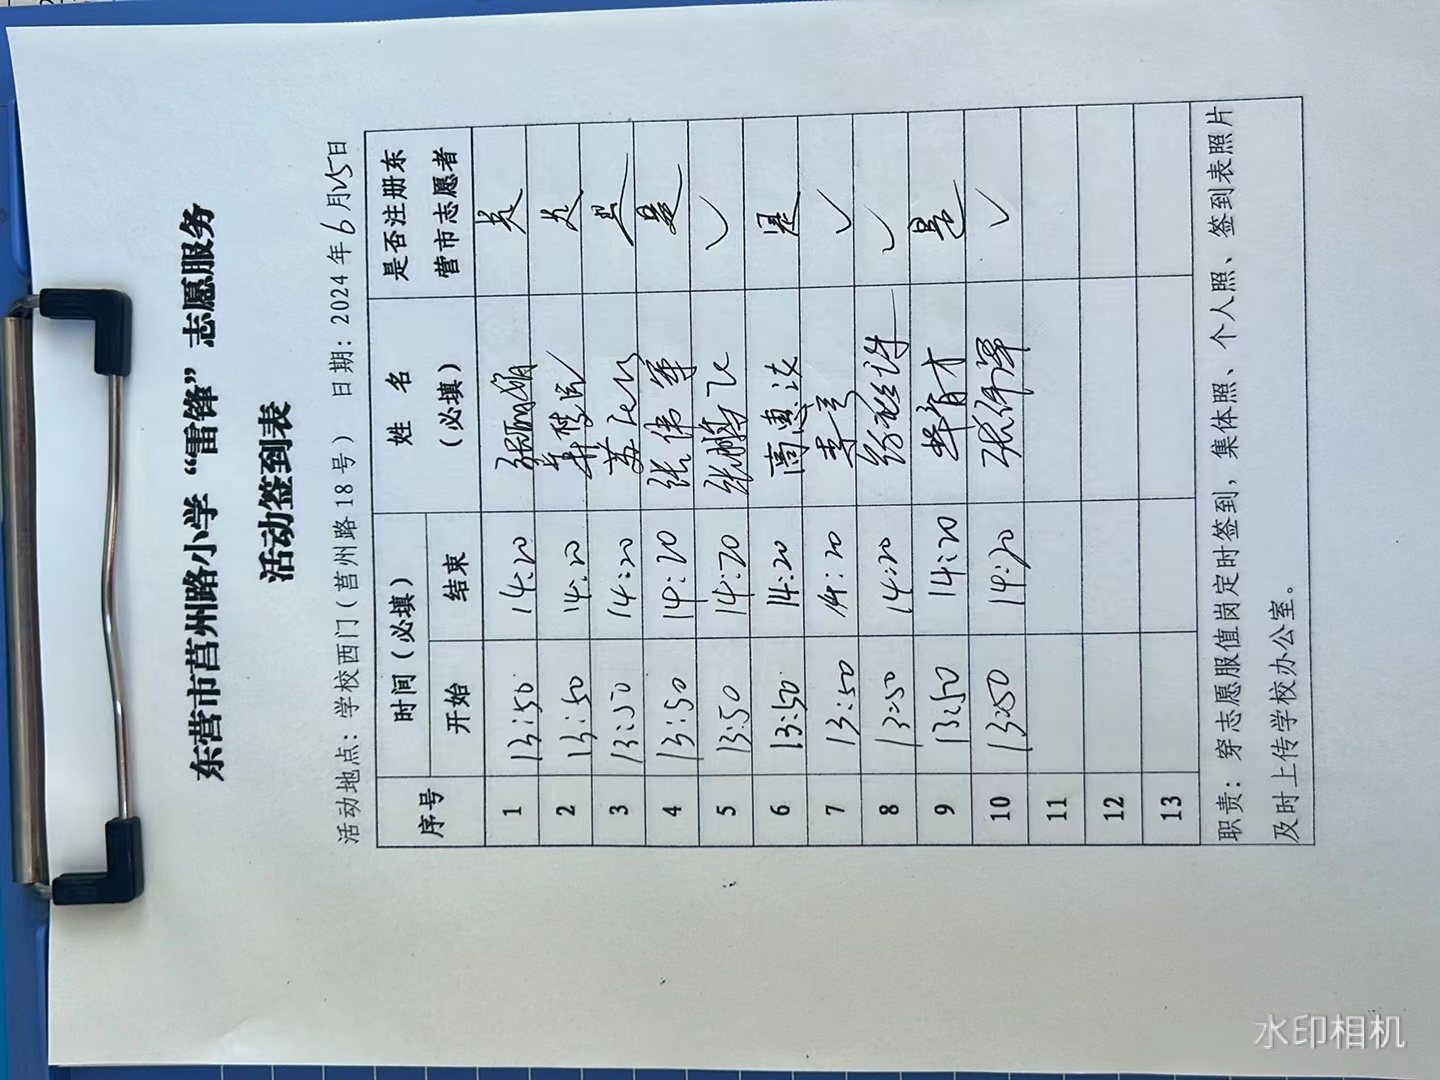 东营市莒州路小学“雷锋”志愿服务
活动签到表
活动地点：学校西门（莒州路18号） 日期：2024年6月25日
序号 时间（必填） 姓 名（必填） 是否注册东营市志愿者
开始 结束
1 13:50 14:20 是
2 13:50 14:20 是
3 13:50 14:20 苏 是
4 13:50 14:20 张伟军 是
5 13:50 14:20 张鹏飞 ✓
6 13:50 14:20 高惠汝 是
7 13:50 14:20 ✓
8 13:50 14:20 ✓
9 13:50 14:20 是
10 13:50 14:20 张 ✓
11
12
13
职责：穿志愿服值岗定时签到，集体照、个人照、签到表照片
及时上传学校办公室。
水印相机